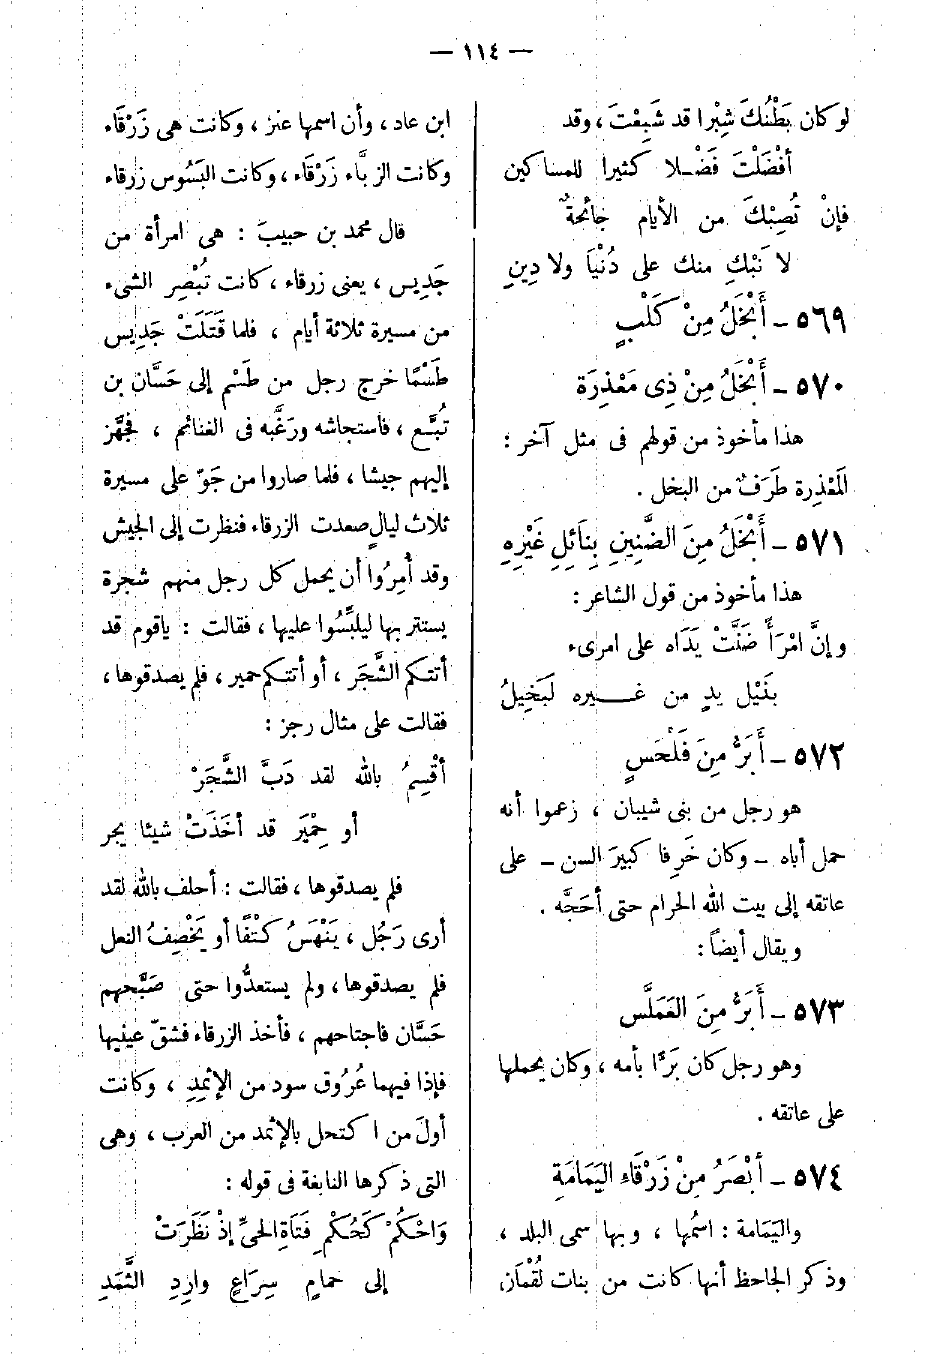 — ١١٤ —
لو كان بَطْنُكَ شِبْرا قد شَبِعْتَ ، وقد
أفْضَلْتَ فَضْـلا كثيرا للمساكين
فإنْ تُصِبْكَ من الأيام جائحةٌ
لا نَبْكِ منك على دُنْيَا ولا دِينِ
٥٦٩ – أَبْخَلُ مِنْ كَلْبٍ
٥٧٠ – أَبْخَلُ مِنْ ذِى مَعْذِرَة
هذا مأخوذ من قولهم فى مثل آخر :
المَعْذِرة طَرَفٌ من البخل .
٥٧١ – أَبْخَلُ مِنَ الضَّنِينِ بِنَائِلِ غَيْرِهِ
هذا مأخوذ من قول الشاعر :
وإنَّ امْرَأً ضَنَّتْ يَدَاه على امرىء
بِنَيْل يدٍ من غـــيره لَبَخِيلُ
٥٧٢ – أَبَرُّ مِنَ فَلْحَسٍ
هو رجل من بنى شيبان ، زعموا أنه
حمل أباه – وكان خَرِفا كبيرَ السن – على
عاتقه إلى بيت الله الحرام حتى أحَجَّه .
ويقال أيضاً :
٥٧٣ – أَبَرُّ مِنَ العَمَلَّس
وهو رجل كان بَرًّا بأمه ، وكان يحملها
على عاتقه .
٥٧٤ – أَبْصَرُ مِنْ زَرْقَاءِ اليَمَامَةِ
واليَمَامة : اسمُها ، وبها سمى البلد ،
وذكر الجاحظ أنها كانت من بنات لُقْمَان
ابن عاد ، وأن اسمها عنز ، وكانت هى زَرْقَاء
وكانت الزبَّاء زَرْقَاء ، وكانت البَسُوس زرقاء
قال محمد بن حبيبَ : هى امرأة من
جَدِيس ، يعنى زرقاء ، كانت تُبْصِر الشىء
من مسيرة ثلاثة أيام ، فلما قَتَلَتْ جَدِيس
طَسْمًا خرج رجل من طَسْم إلى حَسَّان بن
تُبَّـع ، فاستجاشه ورَغَّبه فى الغنائم ، فجهَّز
إليهم جيشا ، فلما صاروا من جَوّ على مسيرة
ثلاث ليالٍ صعدت الزرقاء فنظرت إلى الجيش
وقد أُمِرُوا أن يحمل كل رجل منهم شجرة
يستتر بها ليلبِّسُوا عليها ، فقالت : ياقوم قد
أتتكم الشَّجَر ، أو أتتكم حمير ، فلم يصدقوها ،
فقالت على مثال رجز :
أقْسِمُ بالله لقد دَبَّ الشَّجَرْ
أو حِمْيَر قد أخَذَتْ شيئا يجر
فلم يصدقوها ، فقالت : أحلف بالله لقد
أرى رَجُل ، يَنْهَسُ كَتْفًا أو يَخْصِفُ النعل
فلم يصدقوها ، ولم يستعدُّوا حتى صَبَّحهم
حَسَّان فاجتاحهم ، فأخذ الزرقاء فشقّ عينيها
فإذا فيهما عُرُوق سود من الإثمِدِ ، وكانت
أولَ من اكتحل بالإثمد من العرب ، وهى
التى ذكرها النابغة فى قوله :
وَاحْكُمْ كَحُكْمِ فَتَاةِ الحىِّ إذْ نَظَرَتْ
إلى حَمامٍ سِرَاعٍ وارِدِ الثَّمَدِ